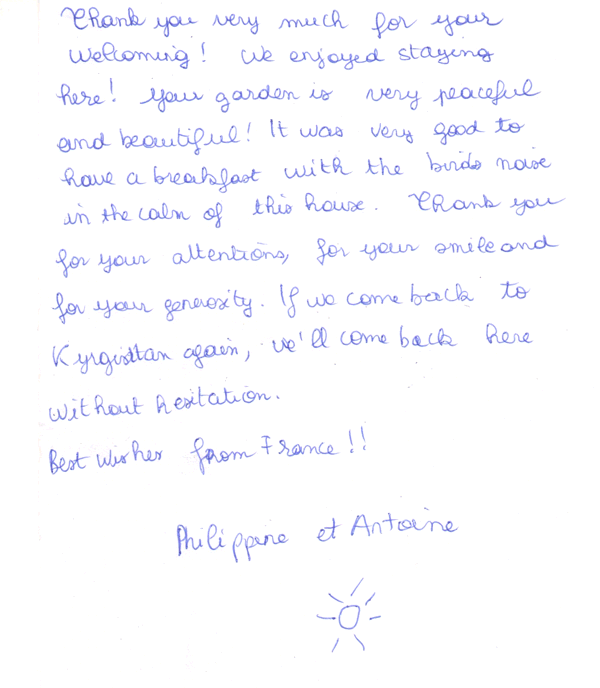 Thank you very much for your
welcoming! We enjoyed staying
here! Your garden is very peaceful
and beautiful! It was very good to
have a breakfast with the birds noise
in the calm of this house. Thank you
for your attentions, for your smile and
for your generosity. If we come back to
Kyrgisttan again, we'll come back here
without hesitation.
Best wishes from France!!
Philippine et Antoine